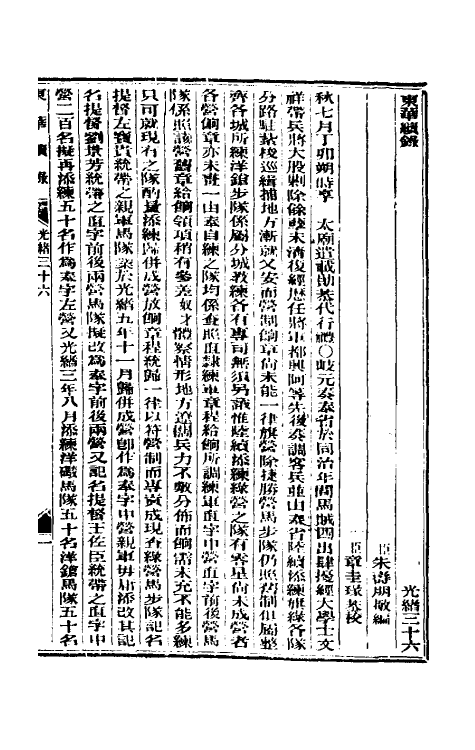 東華續錄
光緒三十六
臣朱壽朋敬編
臣章圭瑑恭校
秋七月丁卯朔時享　太廟遣載勛恭代行禮○岐元奏奏省於同治年間馬賊四出肆擾經大學士文
祥帶兵將大股剿除餘孽未清復經歷任將軍都興阿等先後奏調客兵並由奉省陸續添練旗綠各隊
分路駐紮梭巡緝捕地方漸就乂安而營制餉章尚未能一律旗營除捷勝營馬步隊仍照舊制但屬整
齊各城所練洋鎗步隊係屬分城教練各有專司無須另議惟陸續添練綠營之隊有零星尚未成營者
各營餉章亦未畫一由奉自練之隊均係查照直隸練軍章程給餉所調練軍直字中營直字前後營馬
隊係照該營舊章給餉領項稍有參差奴才體察情形地方遼闊兵力不敷分佈而餉需未充不能多練
只可就現有之隊酌量添練歸併成營放餉章程統歸一律以符營制而專責成現查綠營馬步隊記名
提督左寶貴統帶之親軍馬隊業於光緒五年十一月歸併成營卽作為奉字中營親軍毋庸添改其記
名提督劉景芳統帶之直字前後兩營馬隊擬改為奉字前後兩營又記名提督王佐臣統帶之直字中
營二百名擬再添練五十名作為奉字左營又光緒三年八月添練洋礮馬隊五十名洋鎗馬隊五十名
東華續錄
光緒三十六
一